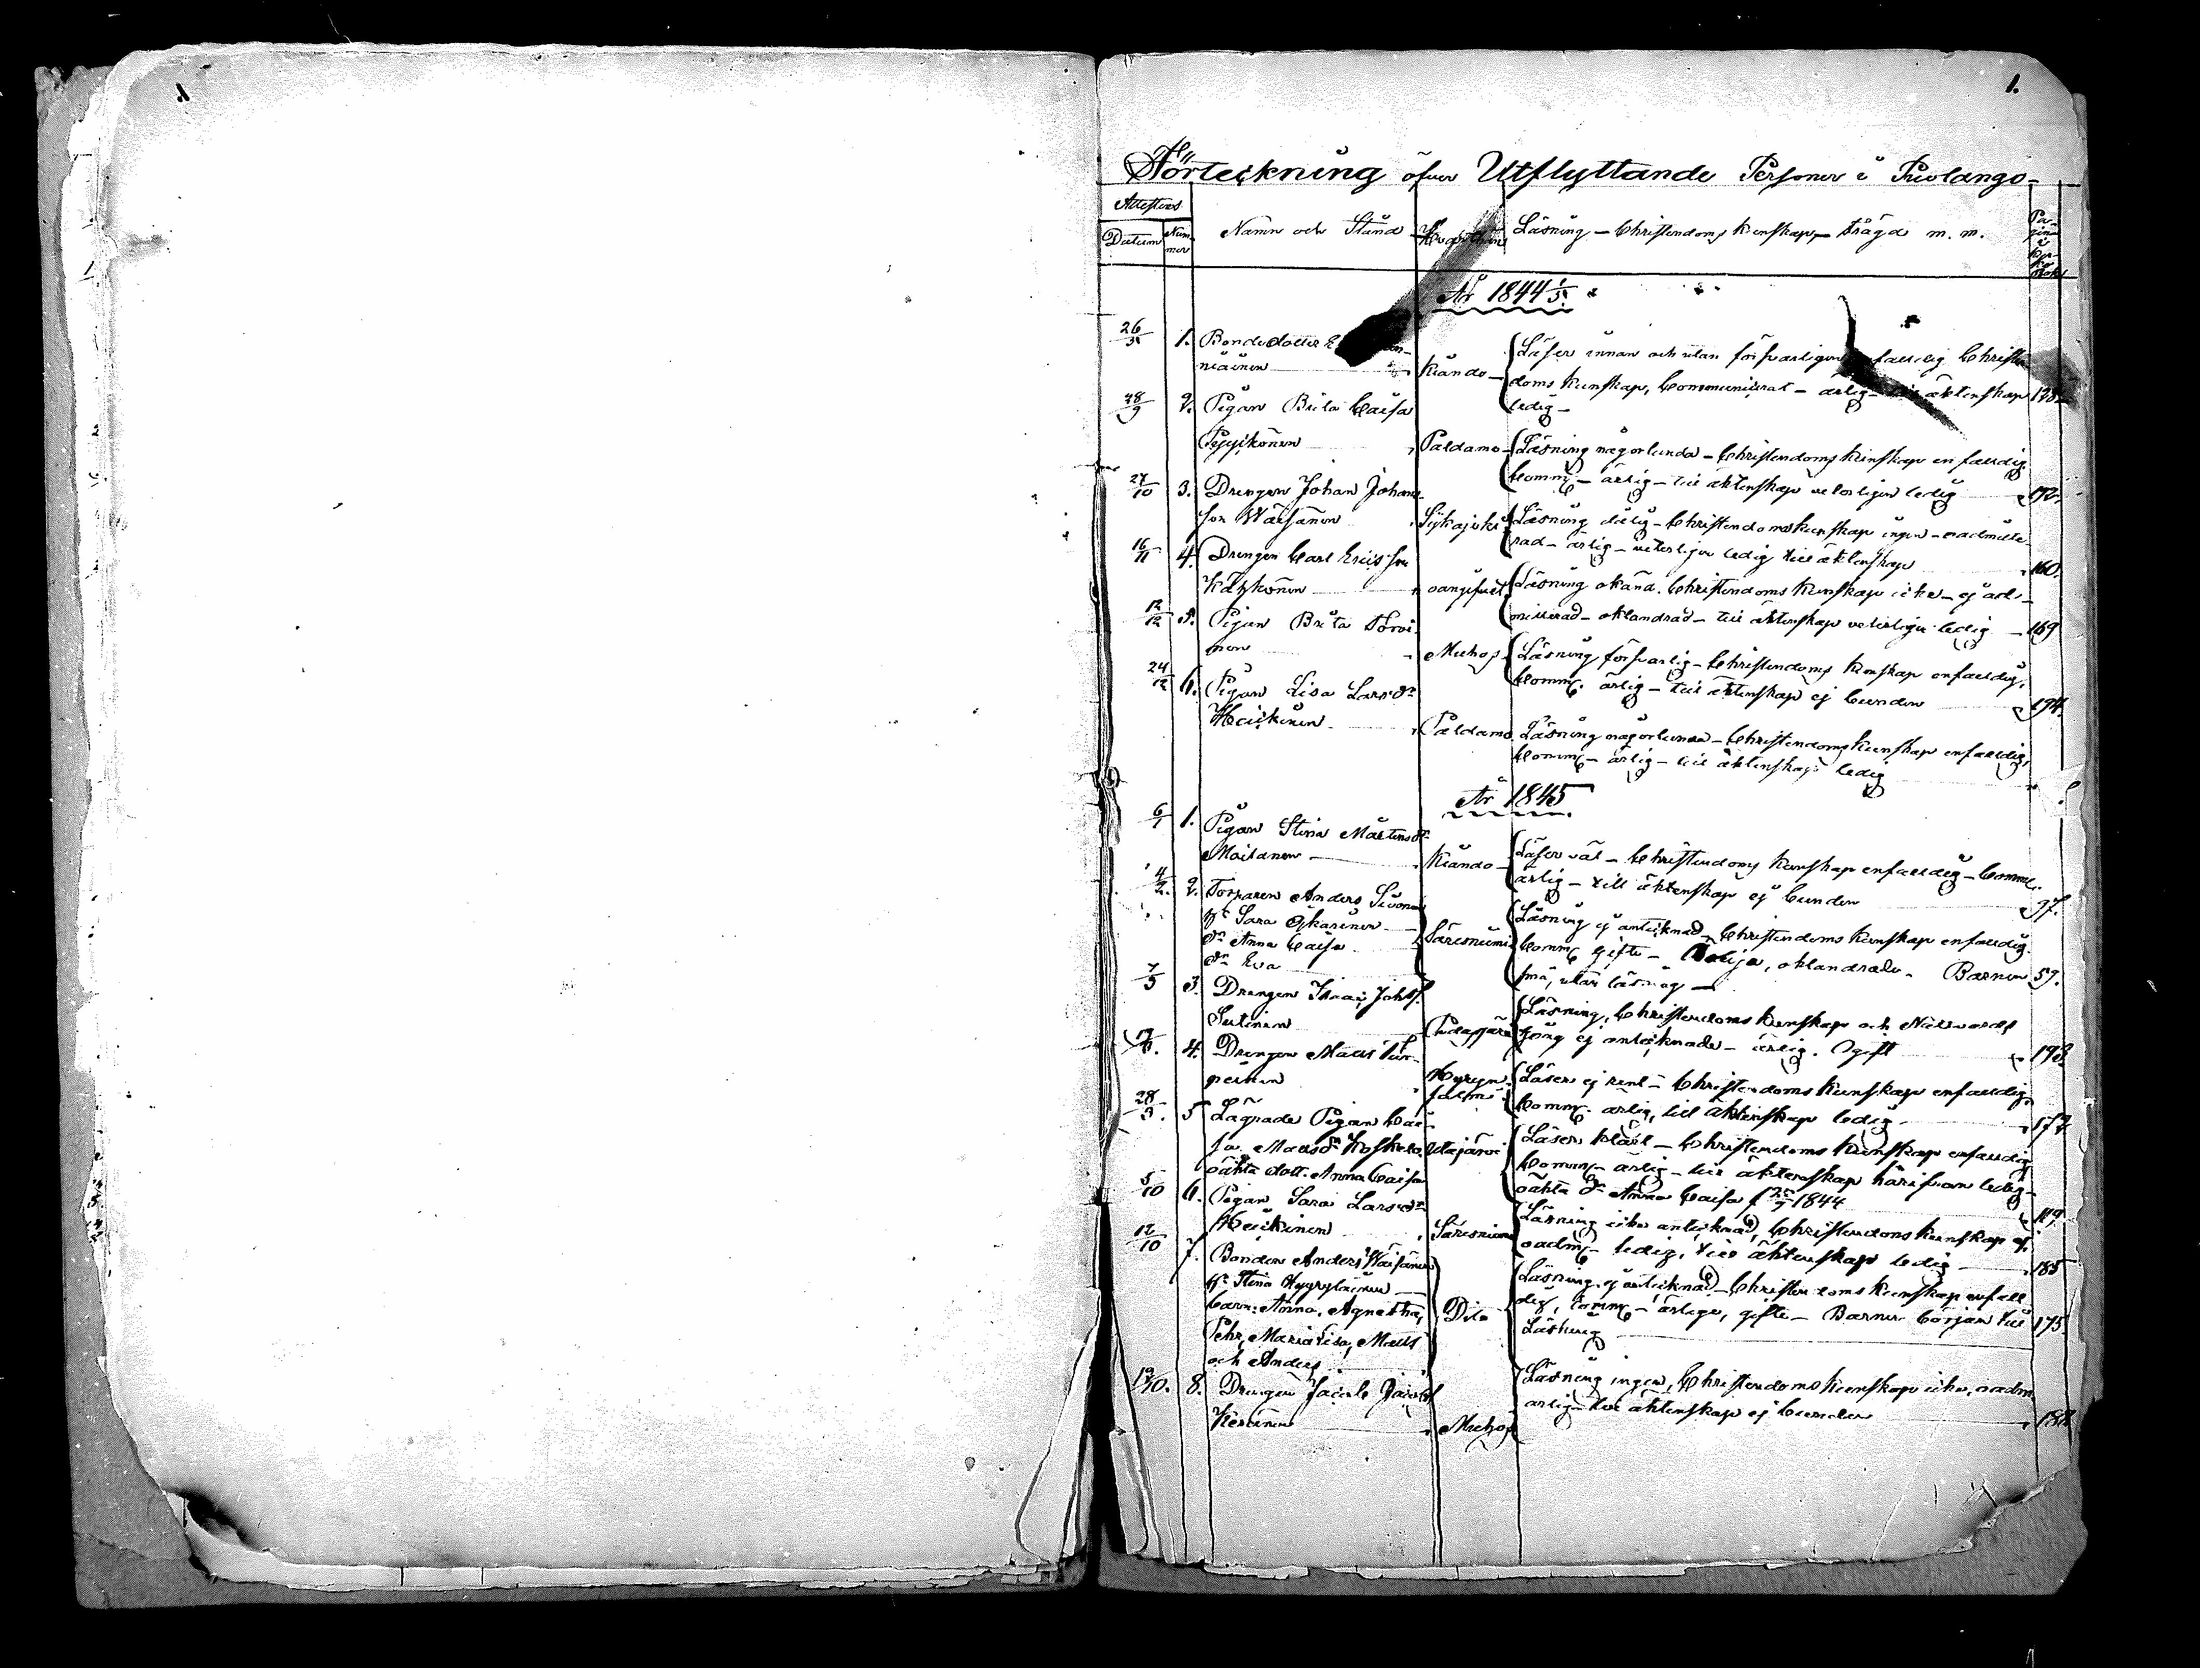 1.
Förteckning öfver Utflyttande Personer i Puolango
Attestens
Datum Nummer Namn och Stånd Läsning – Christendoms kunskap – frägd m. m.
År 1844
26/3 1. Bondedotter
niäinen Kiando Läser innan och utan försvarligen enfaldig Christen
doms kunskap, Communicerat – ärlig – till äktenskap 138
ledig –
28/9 2. Pigan Brita Caisa
Pyykönen Paldamo Läsning någorlunda – Christendoms kunskap enfaldig
Comm. – ärlig – till äktenskap veterligen ledig 192.
27/10 3. Drengen Johan Johans
son Wäisänen Siikajoki Läsning dålig – Christendomskunskap ingen – oadmitte
rad – ärlig – veterligen ledig till äktenskap 160.
16/11 4. Drengen Carl Ericsson
Kätkönen oangifvet Läsning okänd. Christendoms kunskap icke – ej ad
mitterad – oklandrad – till äktenskap veterligen ledig 169
12/12 5. Pigan Brita
nen Muhos Läsning försvarlig – Christendoms kunskap enfaldig,
Comm. ärlig – till äktenskap ej bunden 194.
24/12 6. Pigan Lisa Larsdr
Heikkinen Paldamo Läsning någorlunda – Christendoms kunskap enfaldig,
Comm. – ärlig – till äktenskap ledig
År 1845
6/1 1. Pigan Stina Mårtensdr
Moilanen Kiando Läser väl – Christendoms kunskap enfaldig – Comm.
ärlig – till äktenskap ej bunden 97.
4/2. 2. Torparen Anders Sivonen
hu Sara Karinen
dr Anna Caisa Säresniemi Läsning ej antecknad, Christendoms kunskap enfaldig
dr Eva Comm. gifte – oklandrade – Barnen 59.
små, utan läsning –
7/3 3. Drengen Isaac Johss.
Leinonen Pudasjärvi Läsning, Christendoms kunskap och Nattvards
gång ej antecknade – ärlig. Ogift 193.
4. Drengen Matts Tur
peinen Hyrynsalmi Läser ej rent – Christendoms kunskap enfaldig,
Comm. ärlig, till äktenskap ledig 177
28/9. 5 Lägrade Pigan Cai
sa Matsdr Koskela Utajärvi Läser klart – Christendoms kunskap enfaldig
oäkta dott. Anna Caisa Comm. – ärlig – till äktenskap härifrån ledig –
oäkta dr Anna Caisa f 1844 119.
5/10 6. Pigan Sara Larsdr
Heikkinen Säresniemi Läsning icke antecknad, Christendoms kunskap ej,
oadm. – ledig, till äktenskap ledig 185
12/10 7. Bonden Anders Wäisänen
hu Stina Hyyryläinen
barn: Anna, Agnetha, Dito Läsning ej antecknad, Christendoms kunskap enfal
Pehr, Maria Lisa, Matts dig, Comm. – ärliga, gifte – Barnen börjar till 175.
och Anders Läsning
19/10. 8. Drengen Jacob Jacobss
Keränen Muhos Läsning ingen, Christendoms kunskap icke, oadm
ärlig – till äktenskap ej bunden 188.